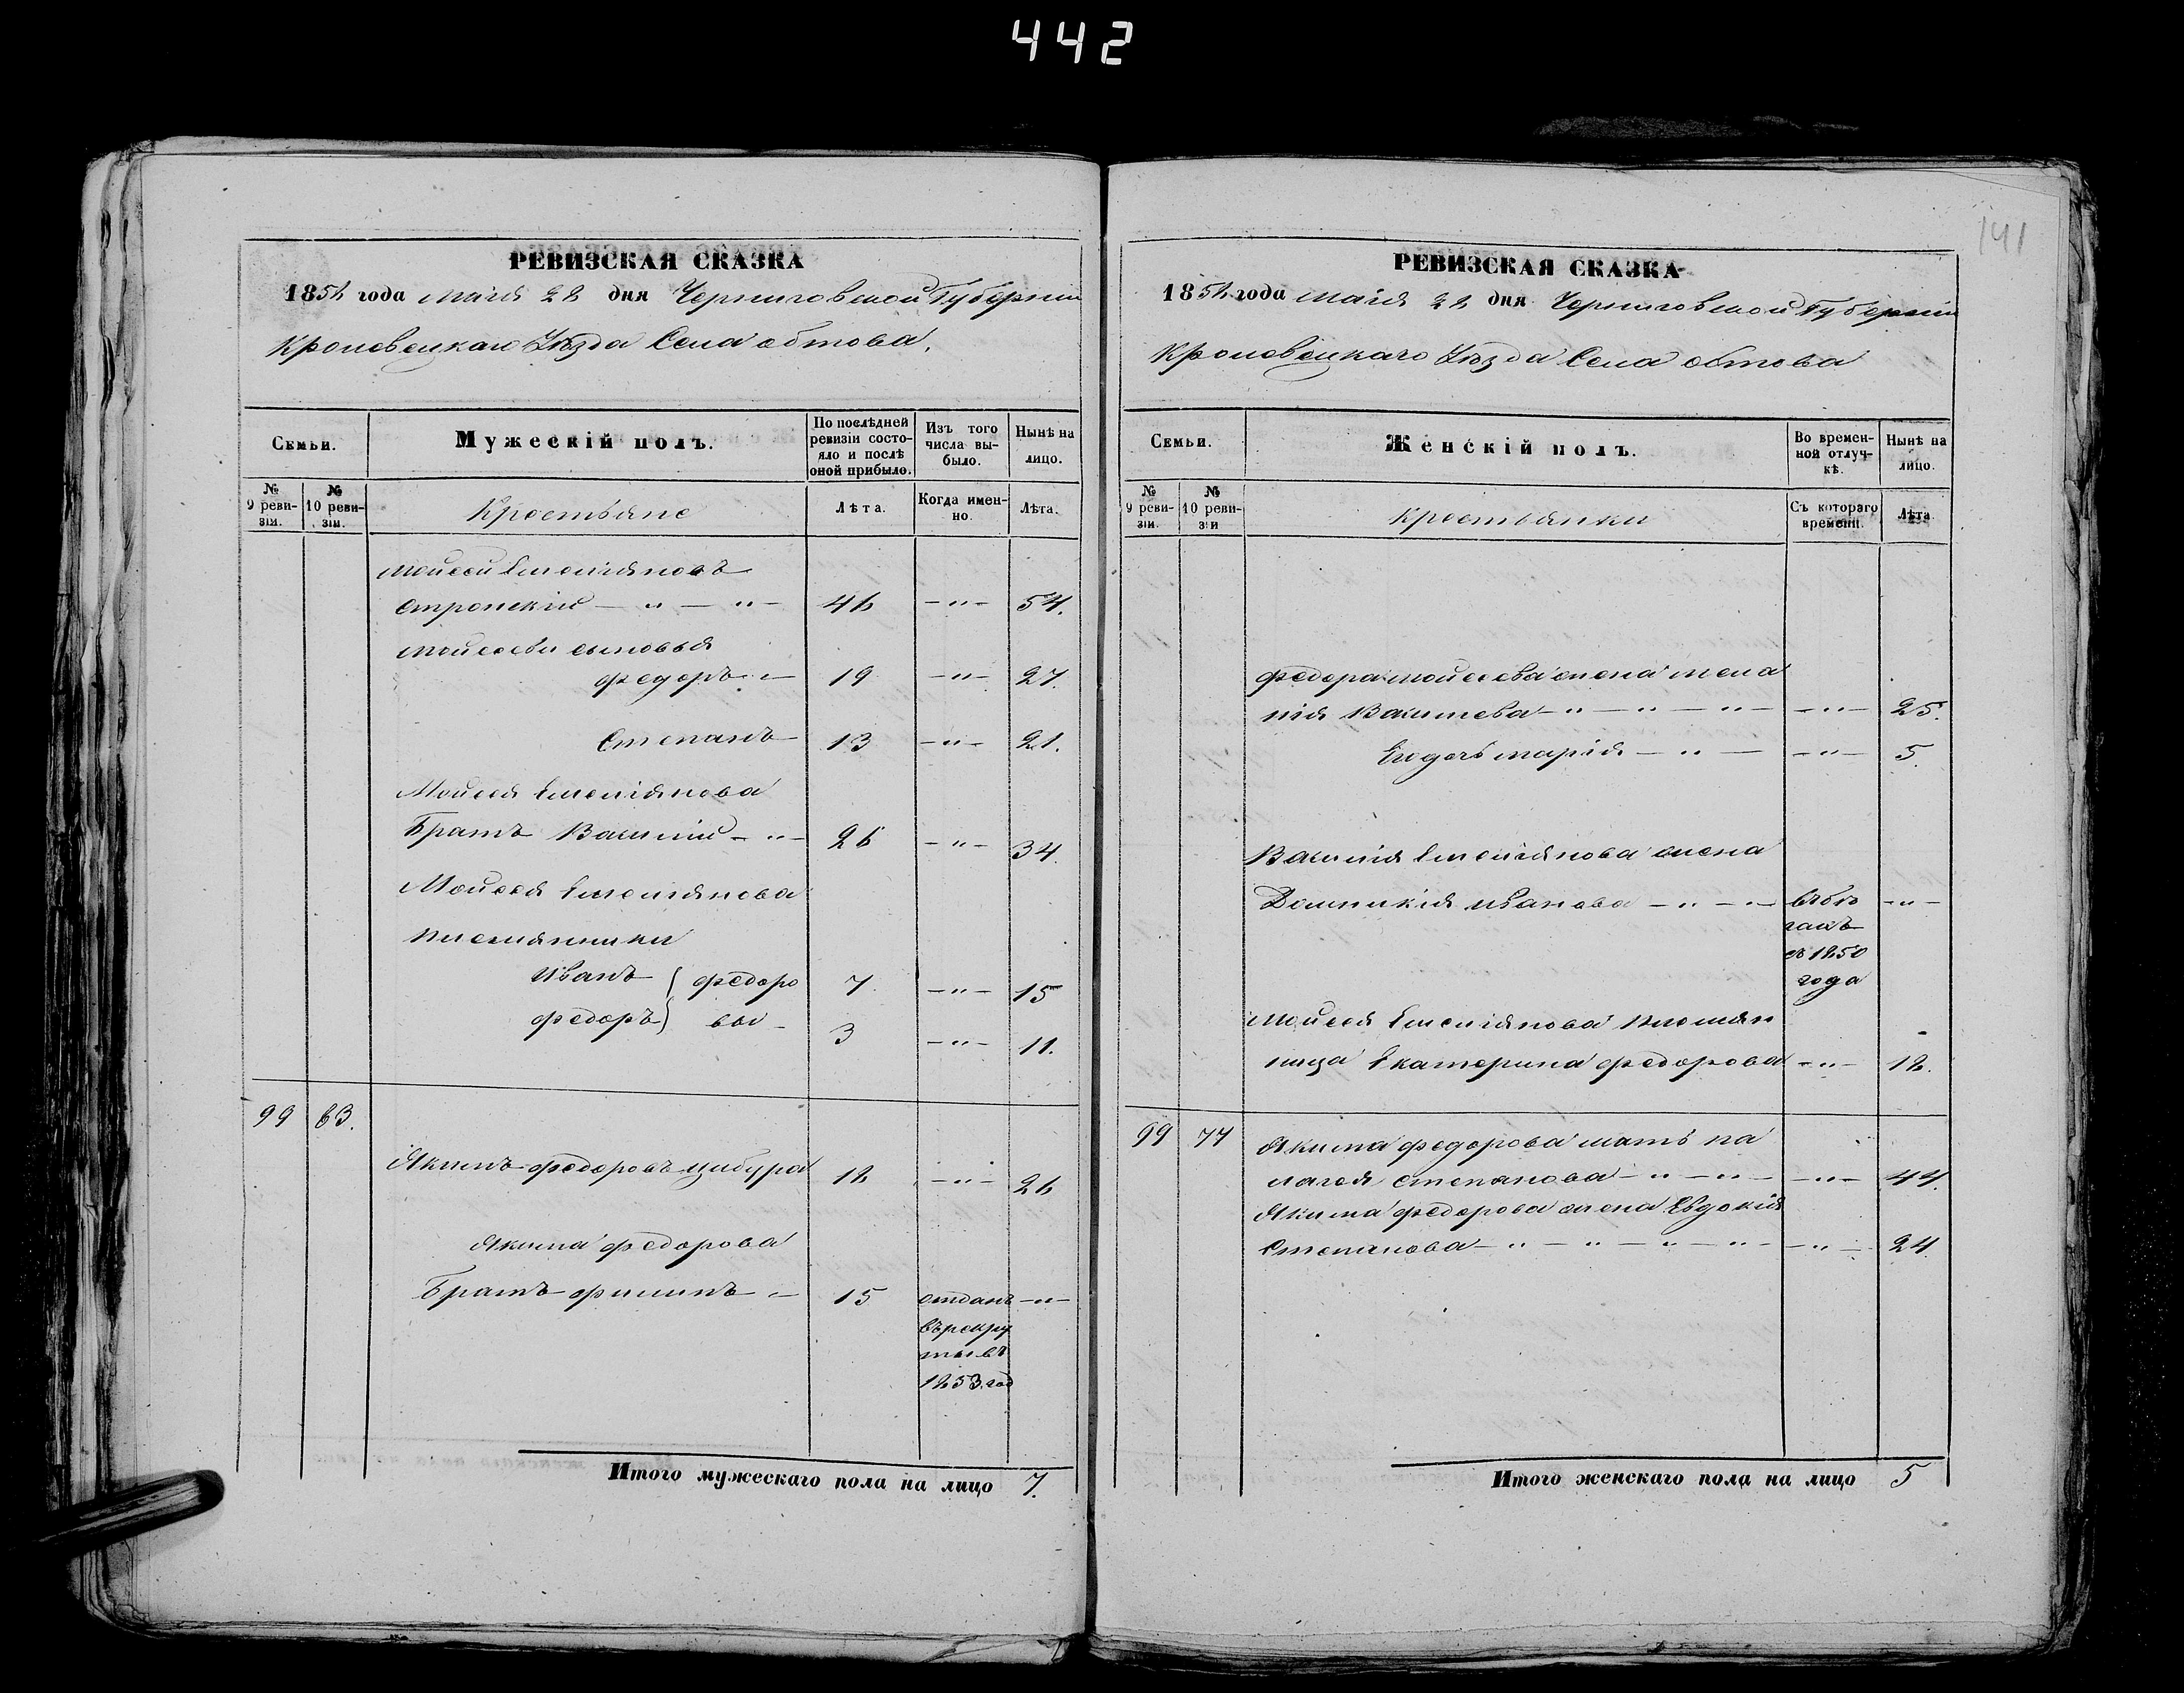 442
141
РЕВИЗСКАЯ СКАЗКА
1858 года маія 22 дня Черниговской Губерніи
Кролевецкаго Уѣзда Села обтова.
Семьи.
Мужескій полъ.
По послѣдней ревизіи состояло и послѣ оной прибыло.
Изъ того числа выбыло.
Нынѣ на лицо.
№ 9 ревизіи.
№ 10 ревизіи.
Крестьяне
Лѣта.
Когда именно.
Лѣта.
Моисей Емеліяновъ
Стронскій — " — " — 46 — " — 54.
Моисеевы сыновья
Федоръ — 19 — " — 27.
Степанъ — 13 — " — 21.
Моисея Емеліянова
Братъ Василій — " — 26 — " — 34.
Моисея Емеліянова
племянники
Иванъ { федоро 7 — " — 15
федоръ } вы — 3 — " — 11.
99 63.
Якимъ федоровъ цибура 18 — " — 26
Якима федорова
Братъ филипъ — 15 отданъ — " —
въ рекру
ты въ
1853. год
Итого мужескаго пола на лицо 7.
РЕВИЗСКАЯ СКАЗКА
1858 года маія 22 дня Черниговской Губерніи
Кролевецкаго Уѣзда Села обтова
Семьи.
Женскій полъ.
Во временной отлучкѣ.
Нынѣ на лицо.
№ 9 ревизіи.
№ 10 ревизіи
крестьянки
Съ котораго времени.
Лѣта
Федора моисеева жена мела
нія Василева — " — " — — " — 25.
Ея дочь марія — " — — " — 5.
Василія Емеліянова жена
Домникія иванова — " — " — въ бѣ — " —
гахъ
съ 1850
года
Моисея Емеліянова племян
ница Екатерина федорова — " — 18.
99 77 Якима федорова мать па
лагея степанова — " — " — — " — 44.
Якима федорова жена Евдокія
Степанова — " — " — " — " — — " — 24.
Итого женскаго пола на лицо 5